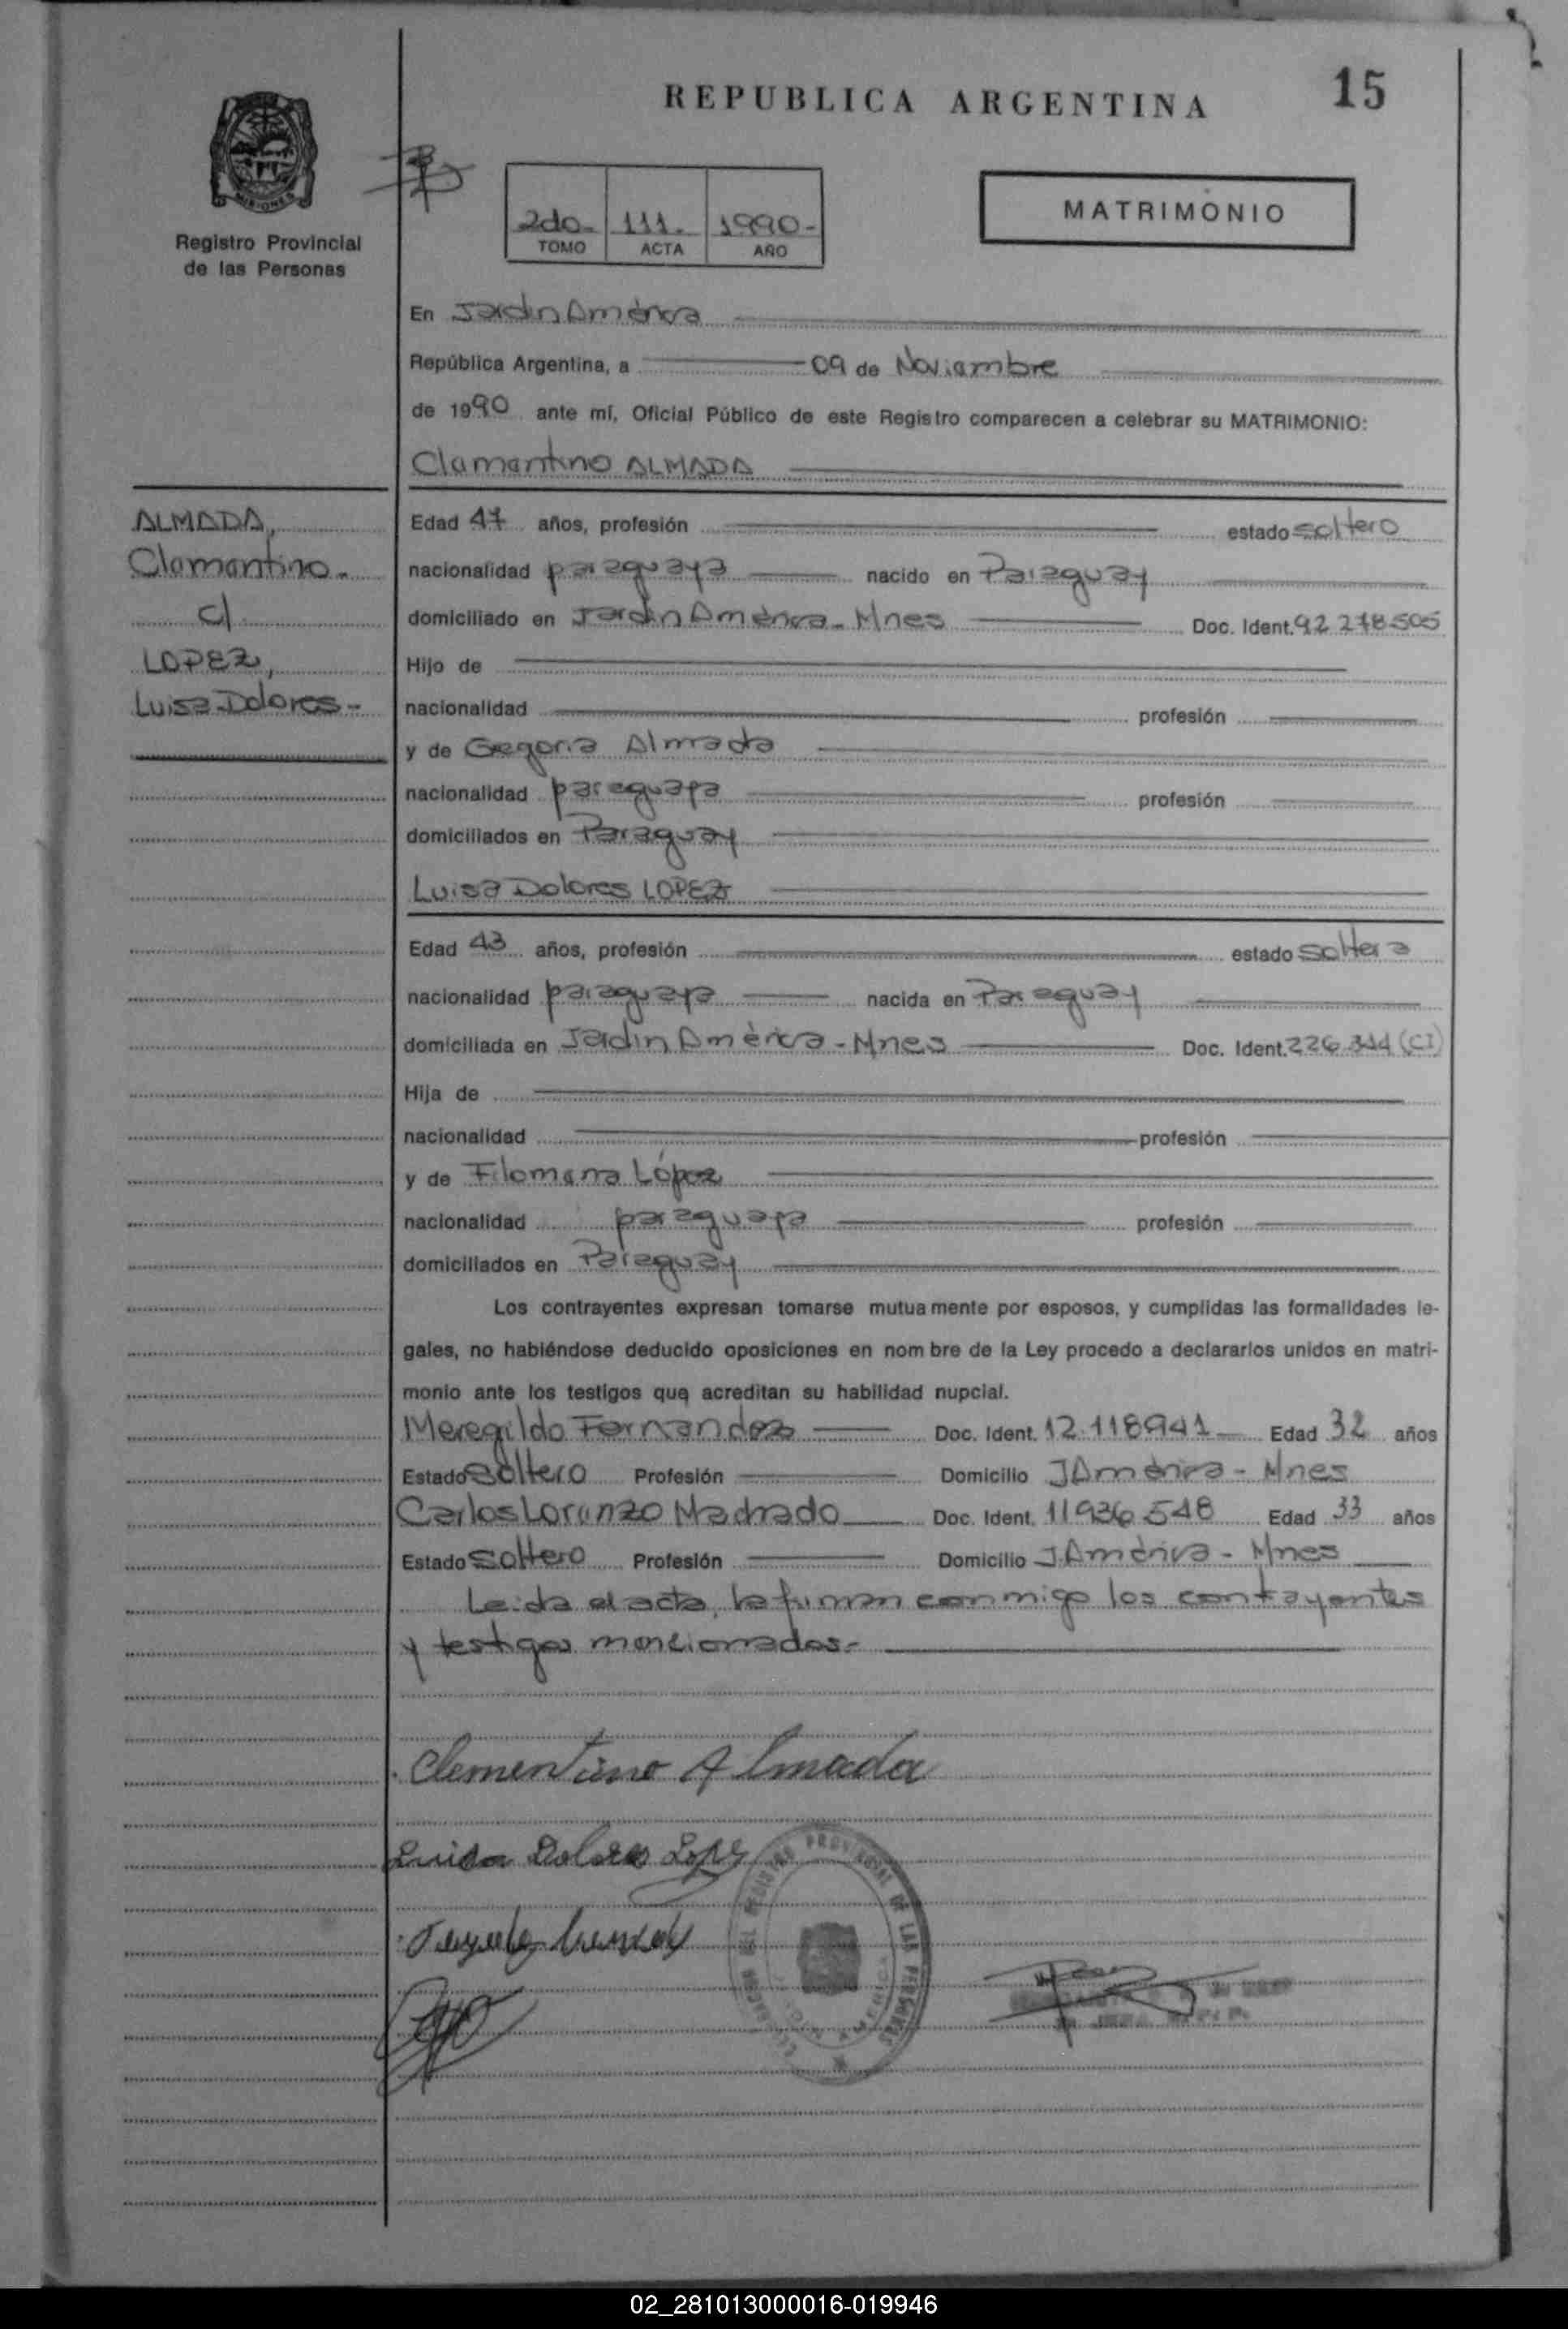 REPUBLICA ARGENTINA
15
MISIONES
Registro Provincial
de las Personas
2do- 111. 1990-
TOMO ACTA AÑO
MATRIMONIO
En Jardín América
República Argentina, a 09 de Noviembre
de 1990 ante mí, Oficial Público de este Registro comparecen a celebrar su MATRIMONIO:
Clementino ALMADA
ALMADA,
Clementino.
c/
LOPEZ,
Luisa Dolores-
Edad 47 años, profesión estado soltero
nacionalidad paraguaya nacido en Paraguay
domiciliado en Jardín América - Mnes Doc. Ident. 92.278.505
Hijo de
nacionalidad profesión
y de Gegoria Almada
nacionalidad paraguaya profesión
domiciliados en Paraguay
Luisa Dolores LOPEZ
Edad 43 años, profesión estado soltera
nacionalidad paraguaya nacida en Paraguay
domiciliada en Jardín América - Mnes Doc. Ident. 226.314 (CI)
Hija de
nacionalidad profesión
y de Filomena López
nacionalidad paraguaya profesión
domiciliados en Paraguay
Los contrayentes expresan tomarse mutuamente por esposos, y cumplidas las formalidades le-
gales, no habiéndose deducido oposiciones en nombre de la Ley procedo a declararlos unidos en matri-
monio ante los testigos que acreditan su habilidad nupcial.
Meregildo Fernandez Doc. Ident. 12.118941 Edad 32 años
Estado Soltero Profesión Domicilio J América - Mnes
Carlos Lorenzo Madrado Doc. Ident. 11936.548 Edad 33 años
Estado soltero Profesión Domicilio J. América - Mnes
Leida el acta, la firman conmigo los contrayentes
y testigos mencionados.-
Clementino Almada
Luisa Dolores Lopez
REGISTRO PROVINCIAL DE LAS PERSONAS
02_281013000016-019946